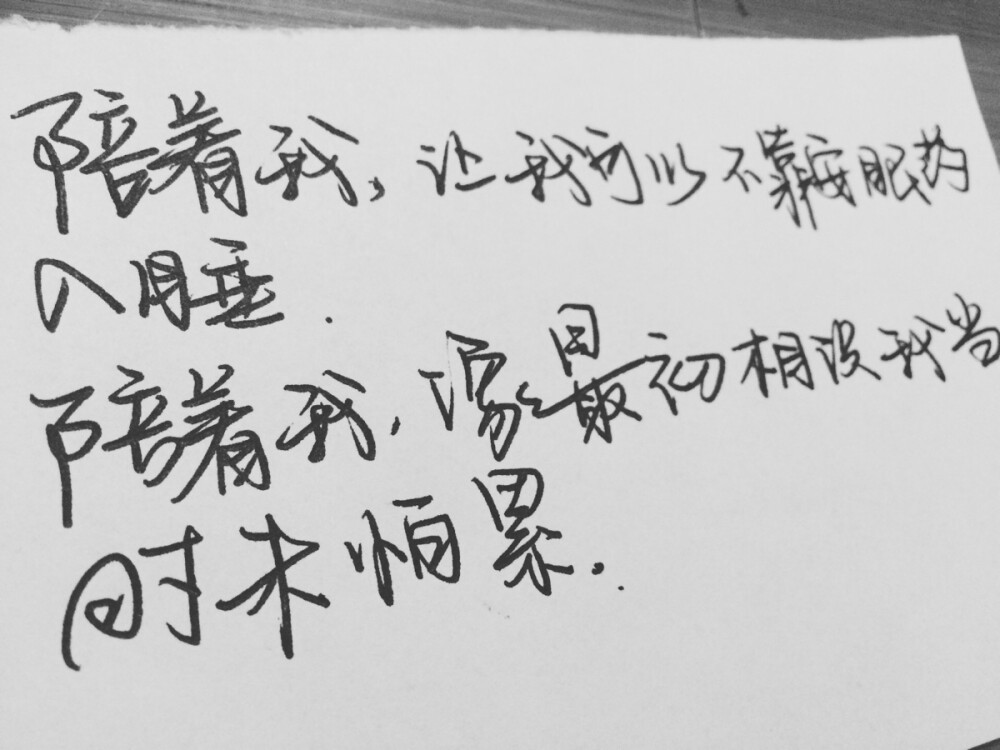 陪着我，让我可以不靠安眠药
入睡.
陪着我，像最初相识我当
时未怕累.